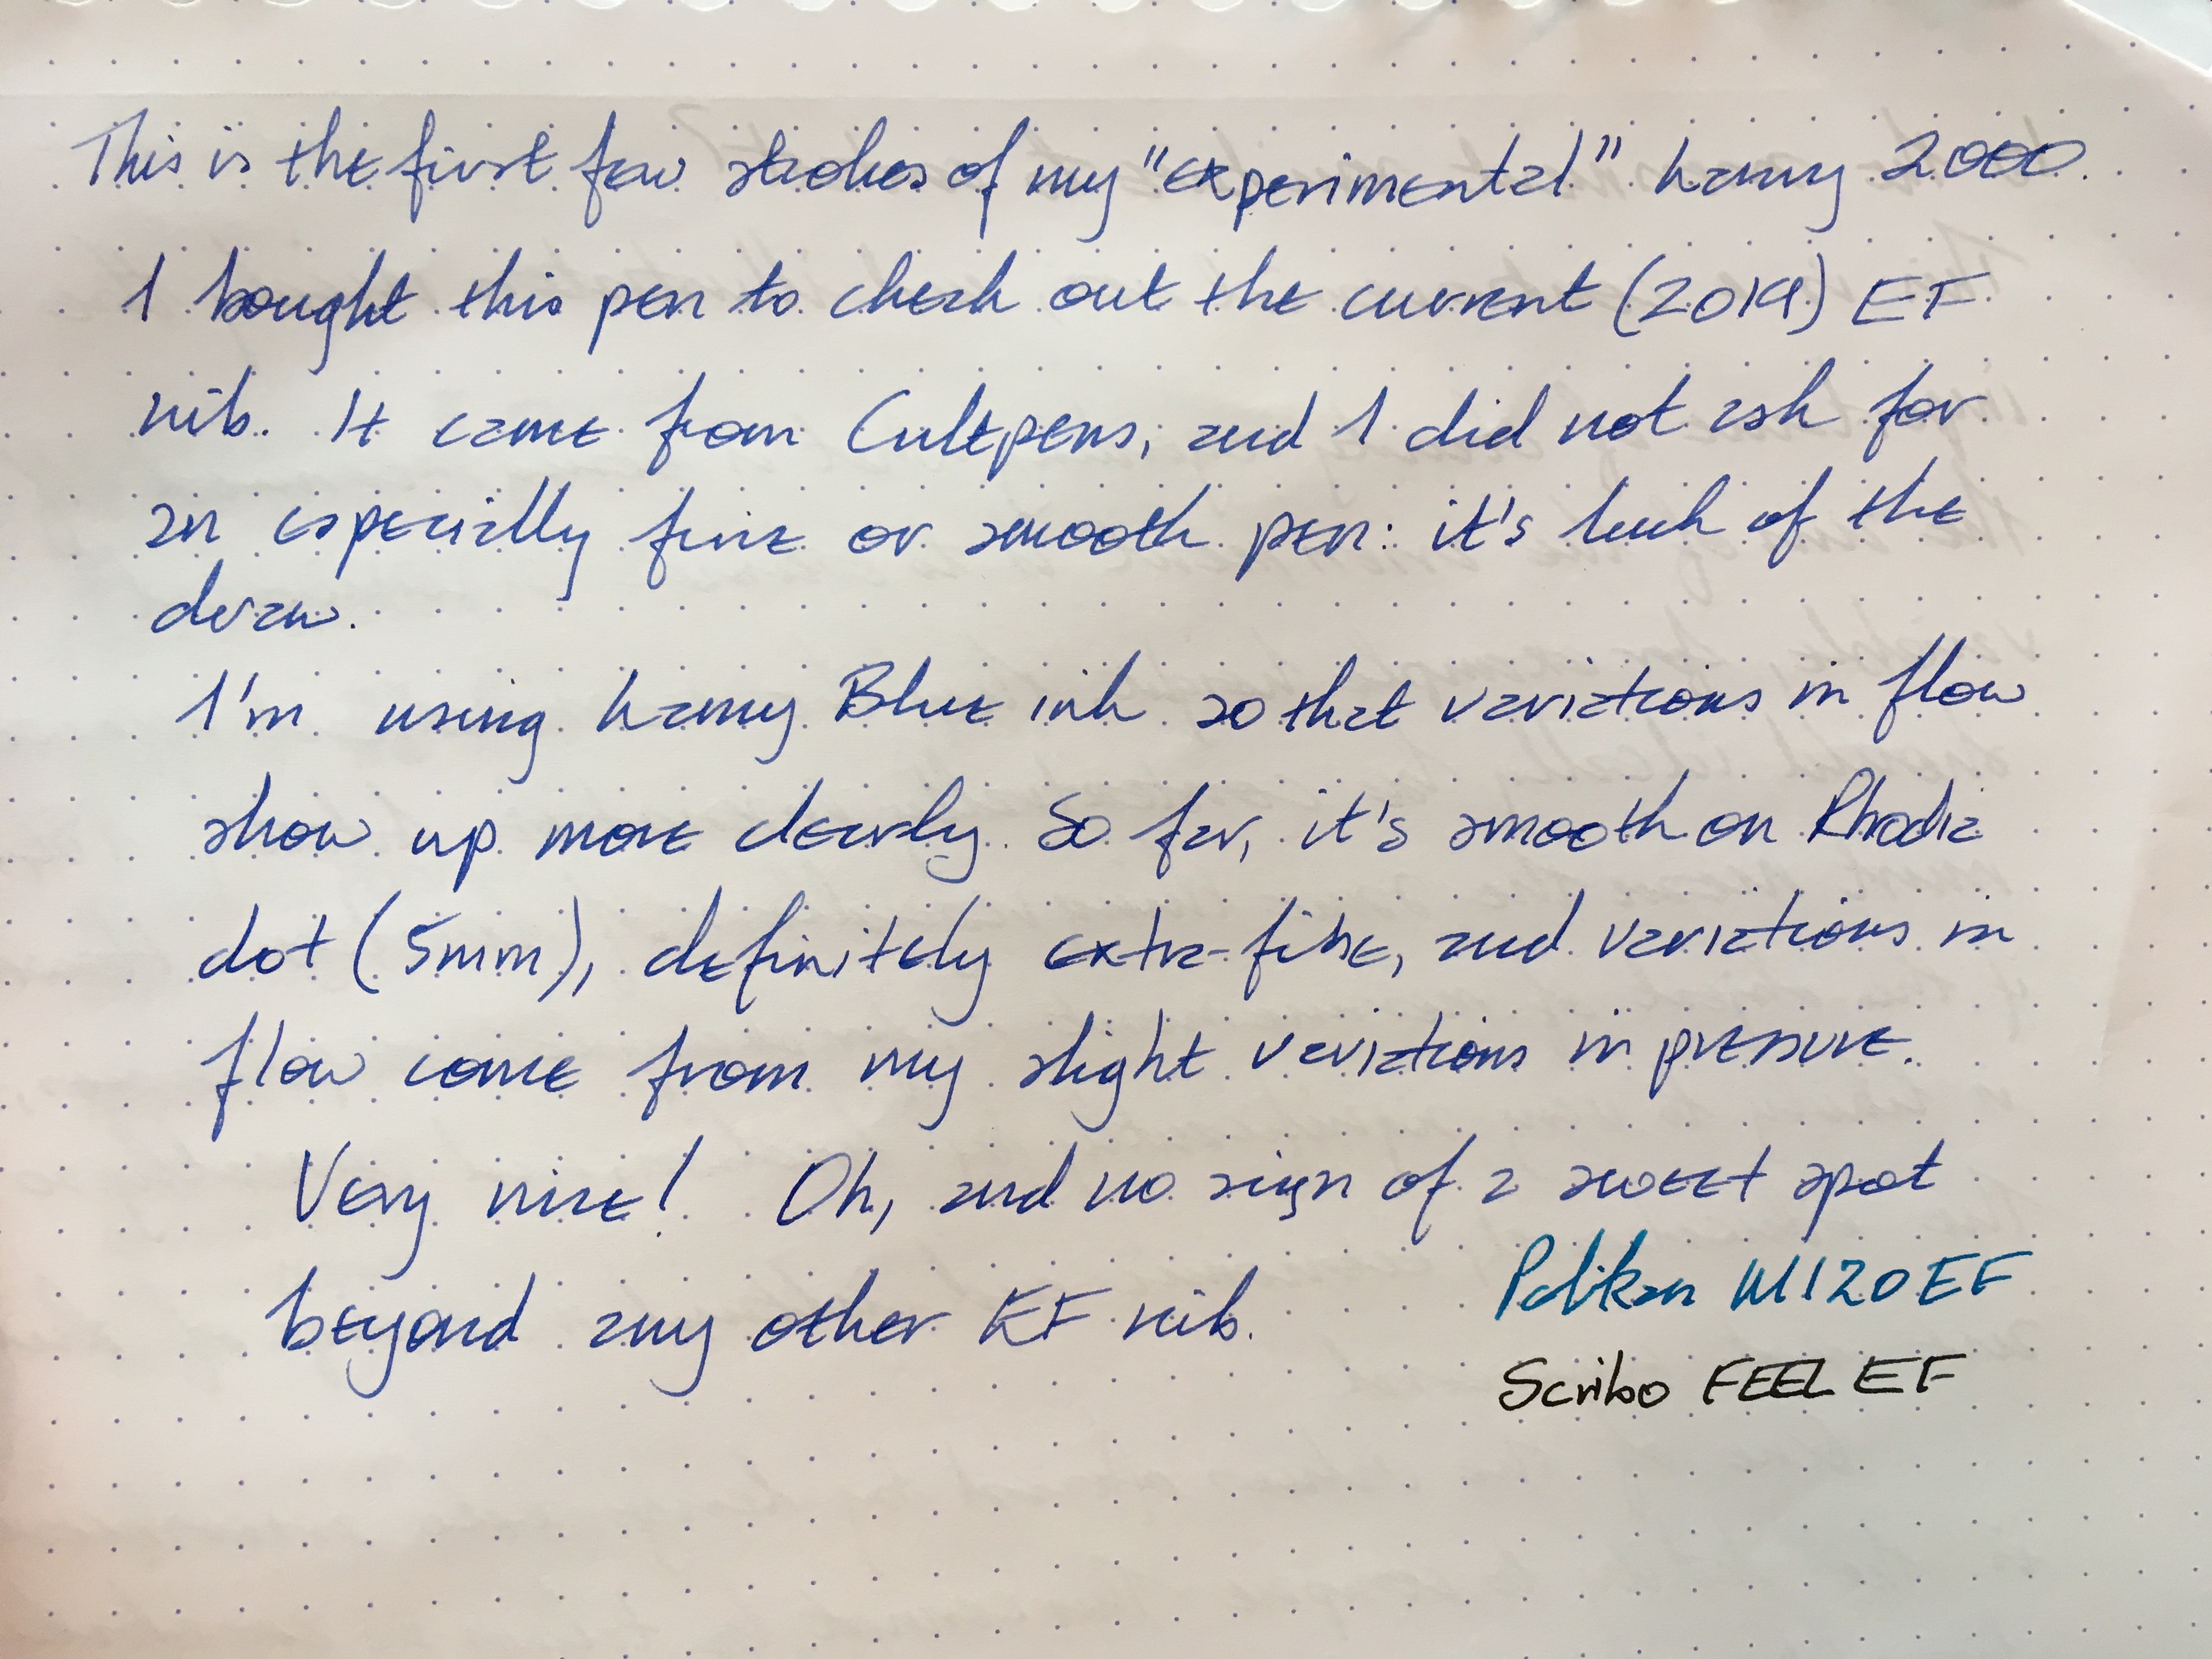 This is the first few strokes of my "experimental" Lamy 2000.
I bought this pen to check out the current (2019) EF
nib. It came from Cultpens, and I did not ask for
an especially fine or smooth pen: it's luck of the
draw.
I'm using Lamy Blue ink so that variations in flow
show up more clearly. So far, it's smooth on Rhodia
dot (5mm), definitely extra-fine, and variations in
flow come from my slight variations in pressure.
Very nice! Oh, and no sign of a sweet spot
beyond any other EF nib.
Pelikan M120 EF
Scribo FEEL EF